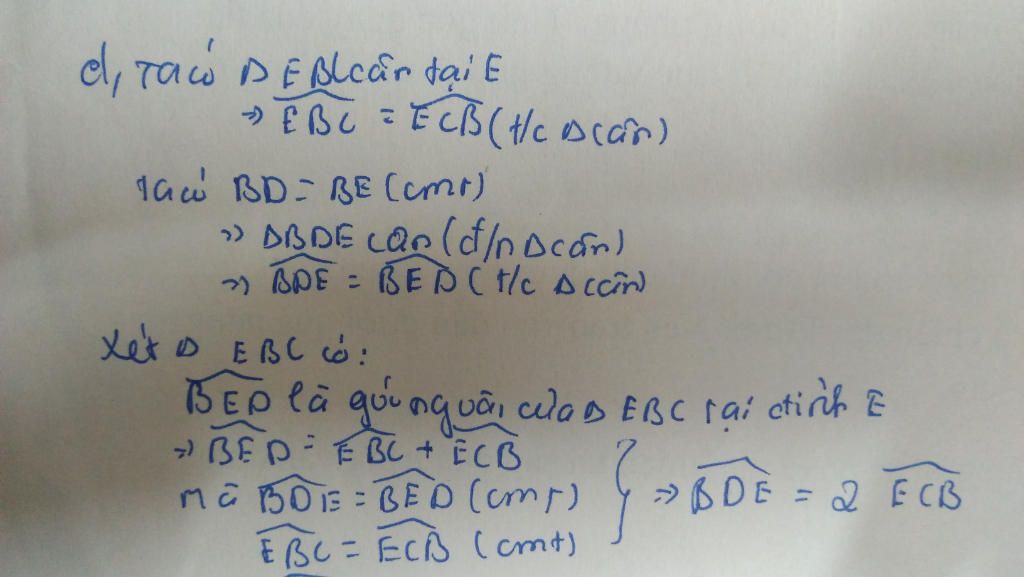 d, Ta có Δ EBC cân tại E
=> EBC = ECB (t/c Δ cân)
Ta có BD = BE (cmt)
=> ΔBDE cân (đ/n Δ cân)
=> BDE = BED (t/c Δ cân)
Xét Δ EBC có:
BED là góc ngoài của Δ EBC tại đỉnh E
=> BED = EBC + ECB
mà BDE = BED (cmt)
EBC = ECB (cmt)
} => BDE = 2 ECB